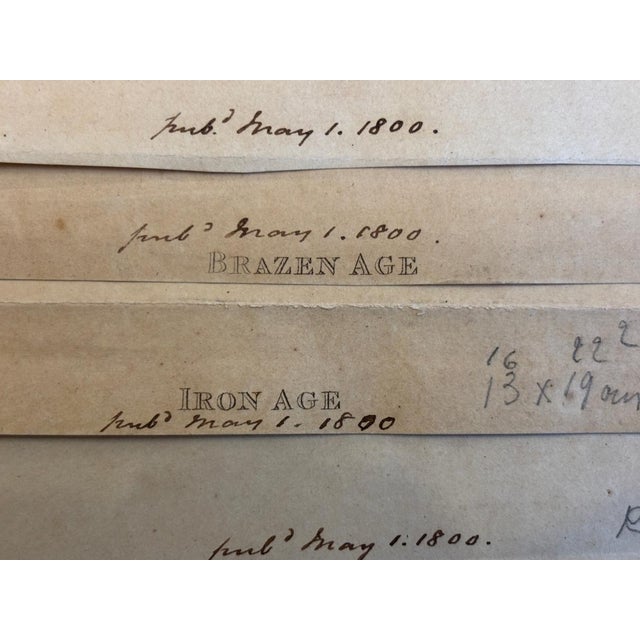 pub.d May 1. 1800.
pubd May 1. 1800.
BRAZEN AGE
16 22 2
IRON AGE 13 x 19 cm
pubd May 1. 1800
pubd May 1. 1800.